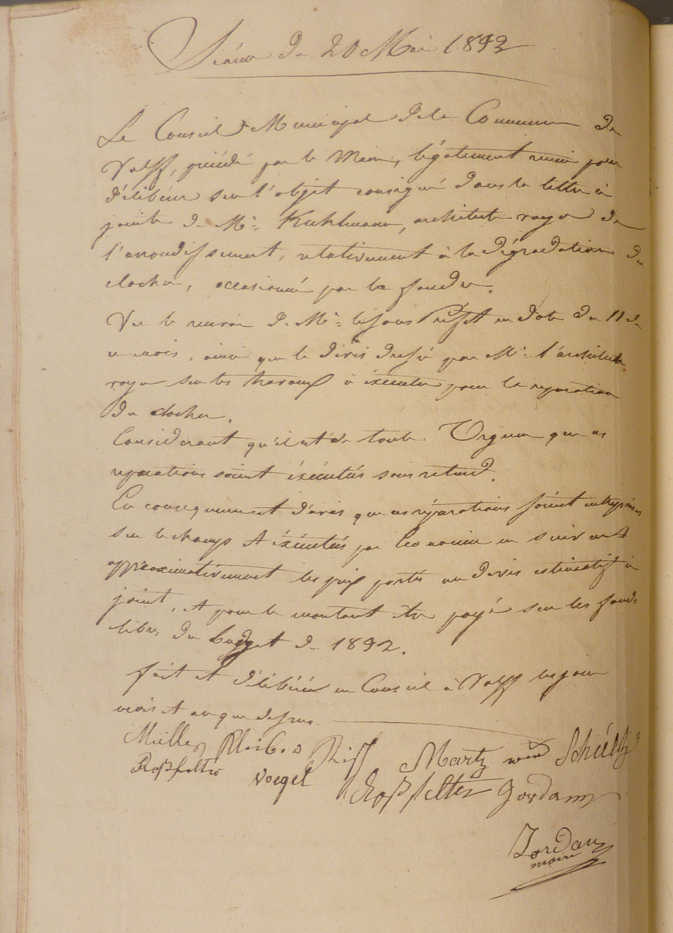 Séance du 20 Mai 1892
Le Conseil Municipal de la Commune de
Valff, présidé par le Maire, légalement réuni pour
délibérer sur l'objet consigné dans la lettre ci
jointe de Mr. Kuhlmann, architecte voyer de
l'arrondissement, relativement à la dégradation du
clocher, occasionné par la foudre.
Vu le renvoi de Mr. le sous Préfet en date du 11 de
ce mois, ainsi que le dévis dressé par Mr. l'architecte
voyer sur les travaux à éxécuter pour la reparation
du clocher.
Considerant qu'il est de toute Urgence que ces
reparations soient éxécutés sans retard.
En consequement d'avis que ces réparations soient entreprises
sur le champs et éxécutés par Economie en suivant
approximativement les prix portés au devis estimatif ci
joint, et pour le montant être payé sur les fonds
libres du budget de 1892.
fait et délibéré en Conseil à Valff les jour
mois et an que dessus.
Müller Riss Martz Schultz
Rossfelter Voegel Rossfelter Jordan
Jordan
maire